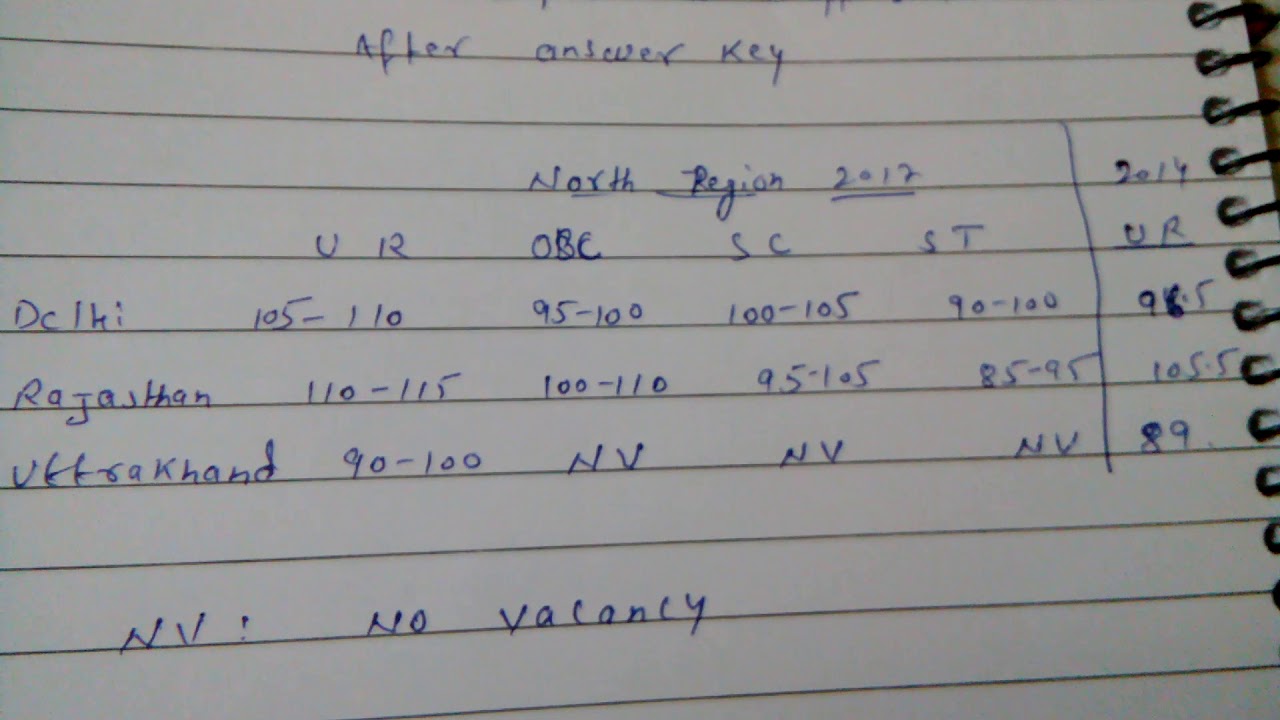 After answer key
North Region 2017 2014
UR OBC SC ST UR
Delhi 105-110 95-100 100-105 90-100
Rajasthan 110-115 100-110 95-105 85-95 105.5
Uttrakhand 90-100 NV NV NV 89
NV: No vacancy